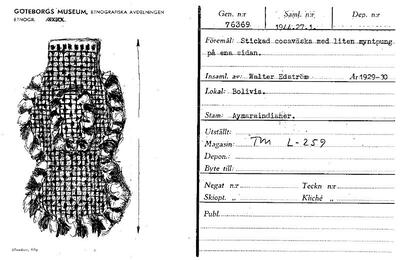 GÖTEBORGS MUSEUM, ETNOGRAFISKA AVDELNINGEN
ETNOGR.
Gen. n:r Saml. n:r Dep. n:r
76369 1944.27.1.
Föremål: Stickad cocaväska med liten myntpung
på ena sidan.
Insaml. av: Walter Edström År 1929-30
Lokal: Bolivia.
Stam: Aymaraindianer.
Utställt:
Magasin: TM L-259
Depon.:
Byte till:
Negat n:r Teckn n:r
Skiopt. „ Kliché „
Publ.